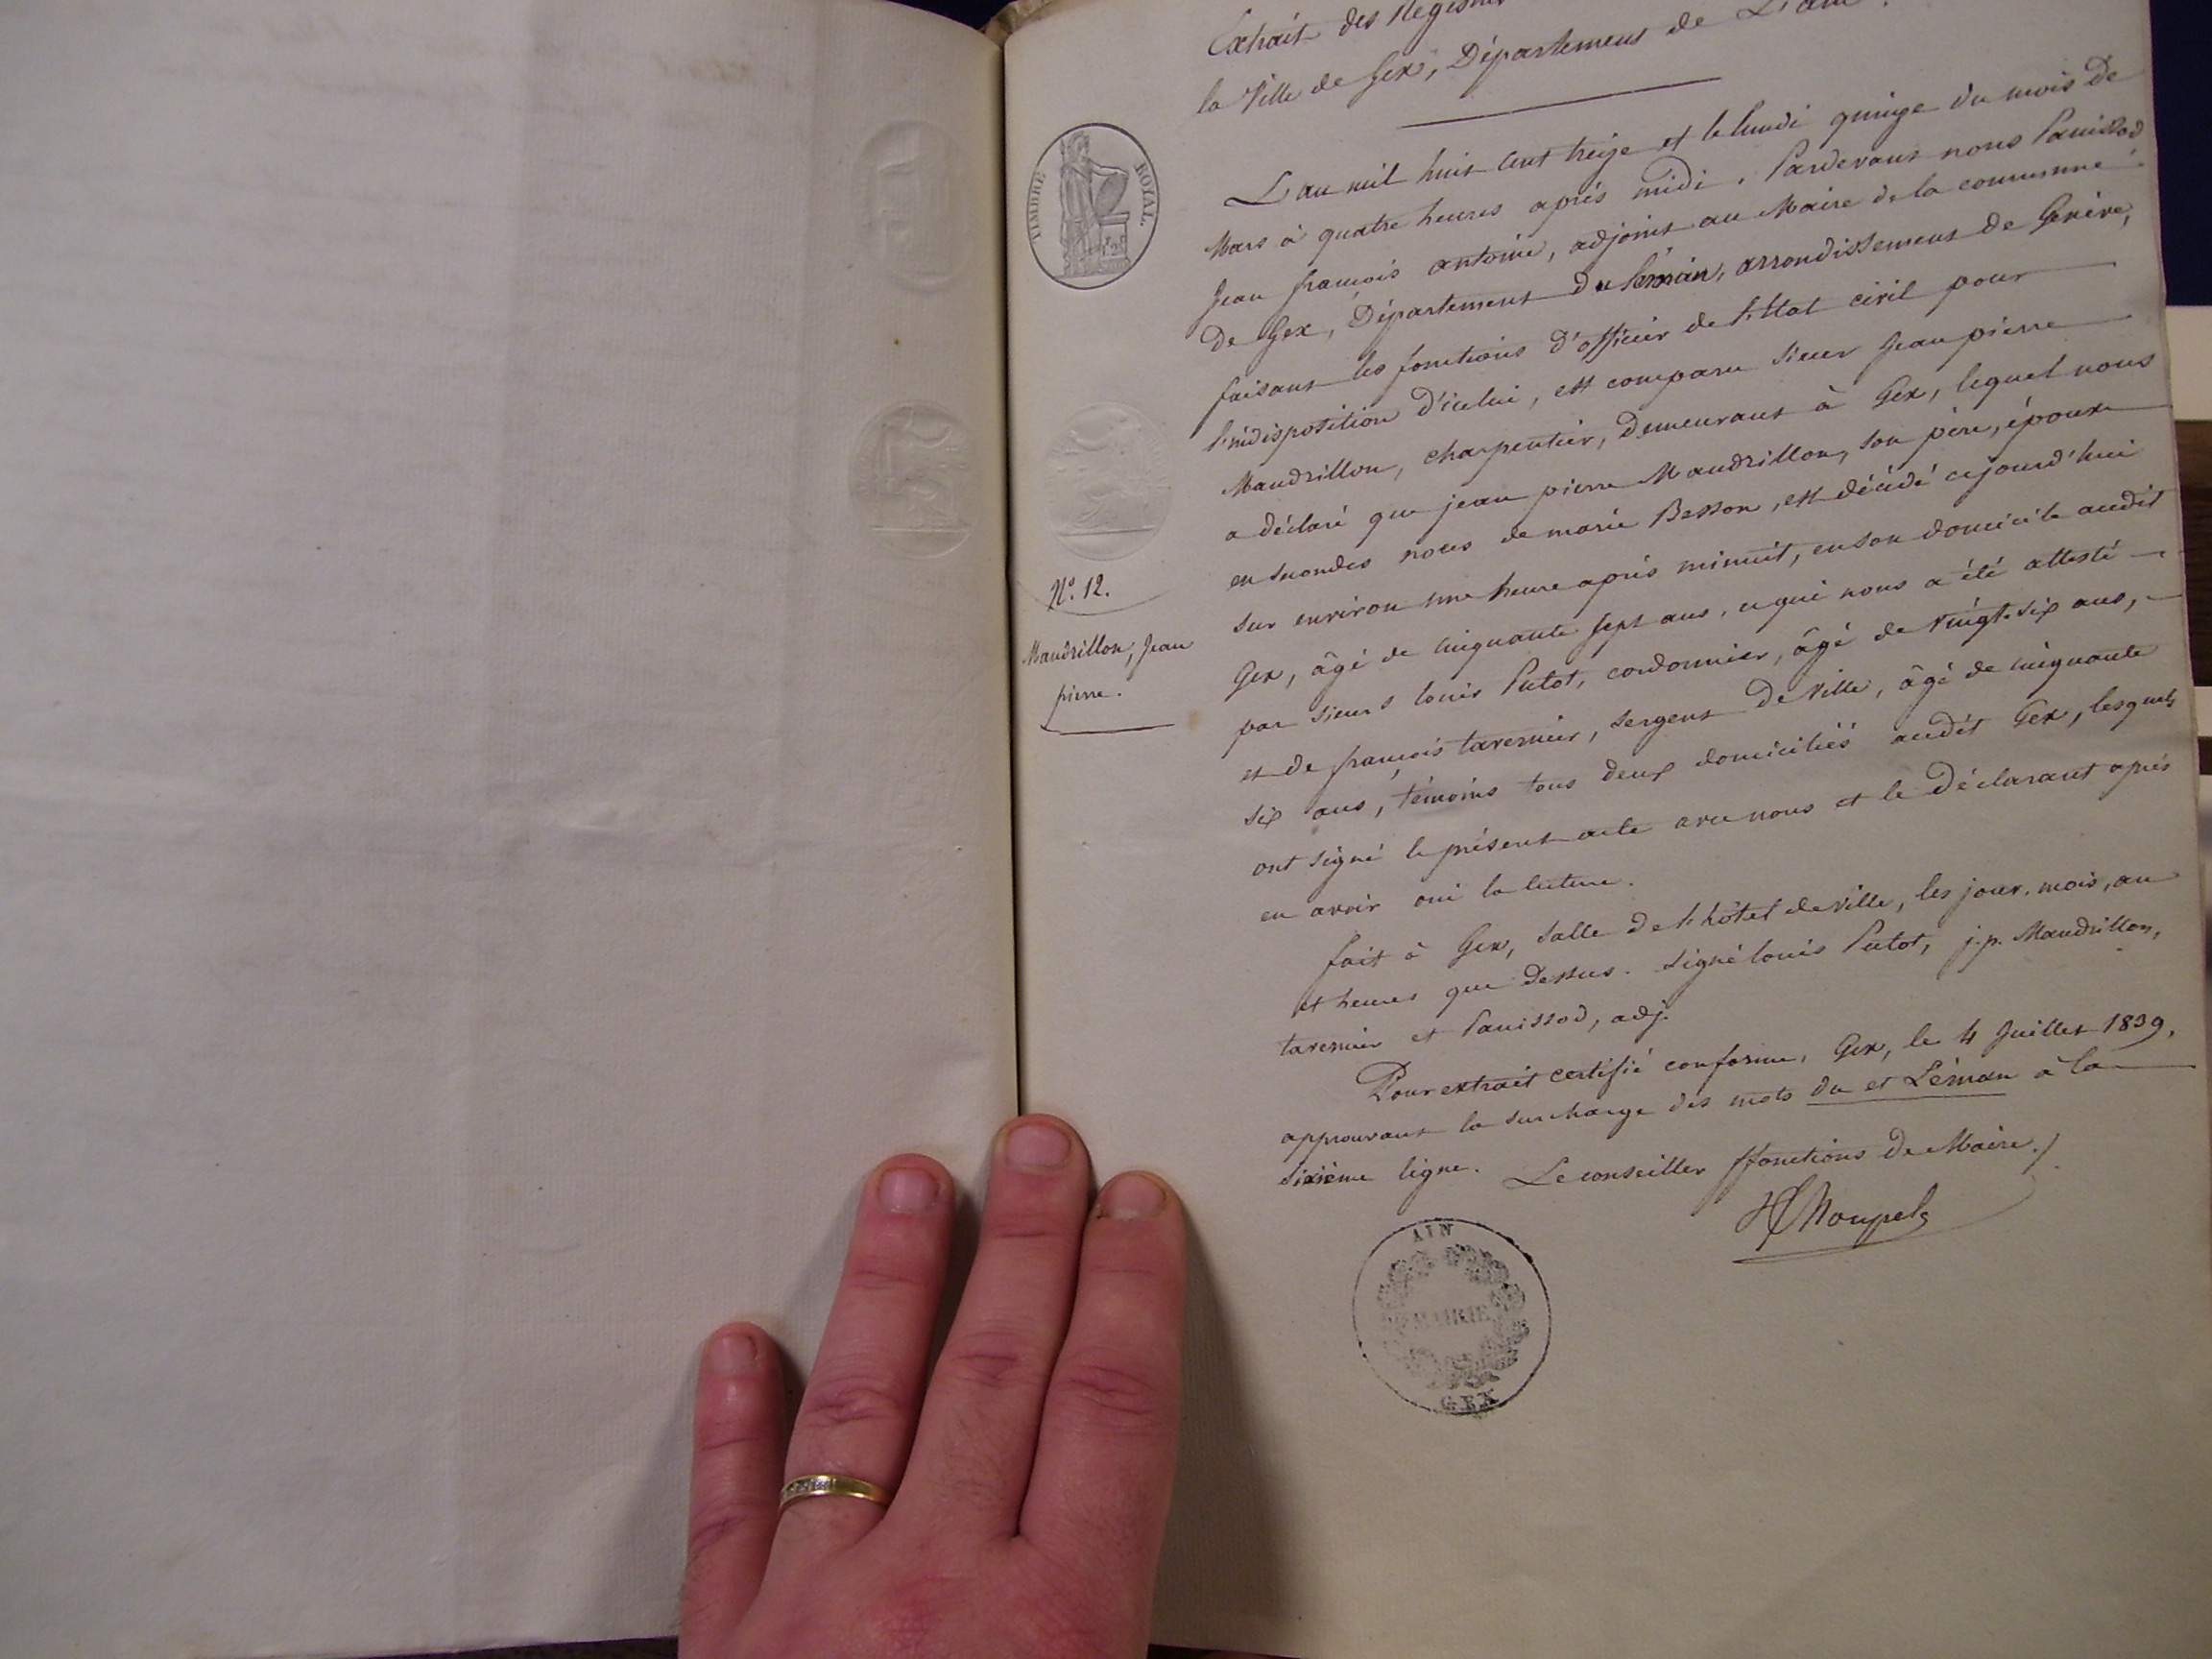 Extrait des Registres
la Ville de Gex, Département de L'ain.
TIMBRE ROYAL
L'an mil huit cent treize et le lundi quinze du mois de
Mars à quatre heures après midi. Pardevant nous Panissod
Jean françois antoine, adjoint au Maire de la commune
de Gex, Département du Léman, arrondissement de Genève,
faisant les fonctions d'officier de l'Etat civil pour
l'indisposition d'icelui, est comparu sieur Jean pierre
Maudrillon, charpentier, Demeurant à Gex, lequel nous
a déclaré que jean pierre Maudrillon, son père, époux
en secondes noces de marie Besson, est décédé cejourd'hui
sur environ une heure après minuit, en son domicile audit
Gex, âgé de cinquante sept ans, ce qui nous a été attesté
par sieurs louis Putot, cordonnier, âgé de vingt-six ans,
et de françois tavernier, sergent De ville, âgé de cinquante
six ans, témoins tous deux domiciliés audit Gex, lesquels
ont signé le présent acte avec nous et le Déclarant après
en avoir oui la lecture.
fait à Gex, salle de l'hôtel de ville, les jour, mois, an
et heures que dessus. signé louis Putot, j. p. Maudrillon,
tavernier et Panissod, adj.
Pour extrait certifié conforme, Gex, le 4 Juillet 1839,
approuvant la surcharge des mots du et Léman à la
sixième ligne. Le conseiller ffonctions De Maire./
N.º 12.
Maudrillon, Jean
pierre.
AIN
MAIRIE
GEX